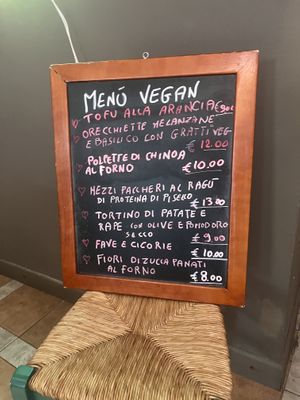 MENÚ VEGAN
TOFU ALLA ARANCIA €9,00
ORECCHIETTE MELANZANE
E BASILICO CON GRATTI VEG
€ 12.00
POLPETTE DI CHINOA
AL FORNO € 10.00
MEZZI PACCHERI AL RAGÚ
DI PROTEINA DI PISELLO
€ 13.00
TORTINO DI PATATE E
RAPE CON OLIVE E POMODORO
SECCO € 9.00
FAVE E CICORIE
€ 10.00
FIORI DI ZUCCA PANATI
AL FORNO
€ 8.00